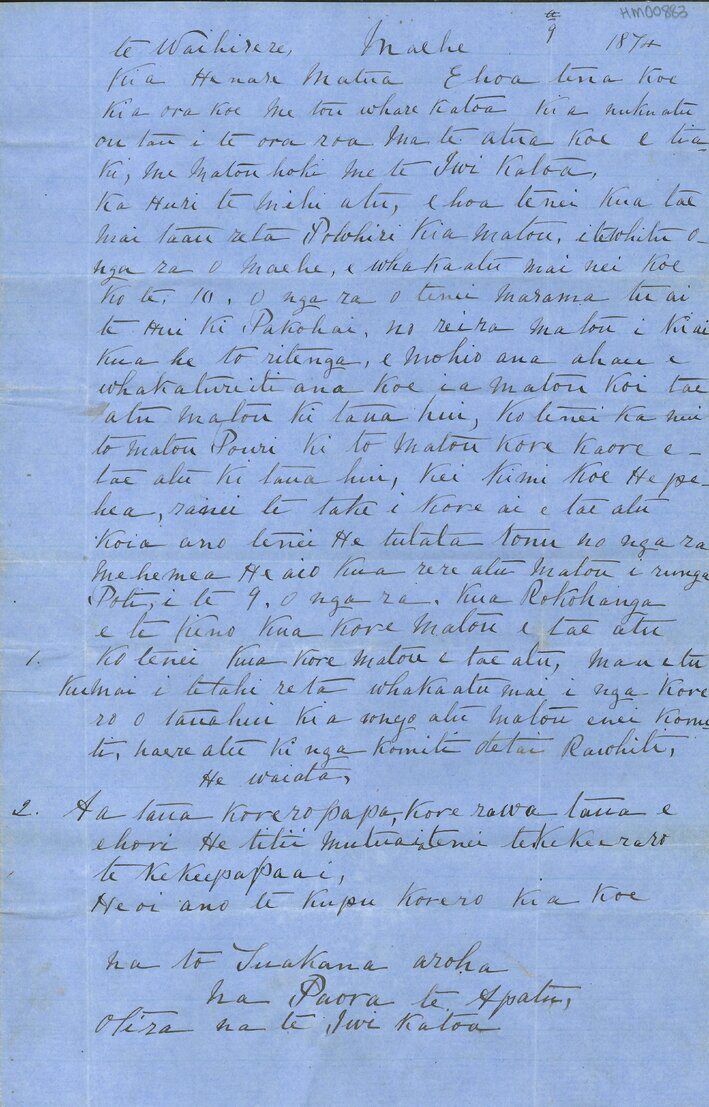 HM00883
te Waihirere, Maehe te 9 1874
Kia Henare Matua Ehoa tena koe
kia ora koe me tou whare katoa kia nukuatu
ou tau i te ora roa Ma te atua koe e tia-
ki, me Matou hoki me te Iwi katoa,
ka Huri te mihi atu, ehoa tenei kua tae
mai taau reta Powhiri kia matou, itewhitu o-
nga ra o Maehe, e whakaatu mai nei koe
ko te, 10, o nga ra o tenei marama tu ai
te Hui ki Pakohai, no reira matou i kiai
kua he to ritenga, e mohio ana ahau e
whakatureiti ana koe i a matou koi tae
atu matou ki taua hui, ko tenei ka nui
to matou Pouri ki to Matou kore kaore e-
tae atu ki taua hui, kei kimi koe He pe-
hea, ranei te take i kore ai e tae atu
koia ano tenei He tutata tonu no nga ra
mehemea He aio kua rere atu matou i runga
Poti, i te 9, o nga ra, kua Rokohanga
e te kino kua kore matou e tae atu
1. ko tenei kua kore matou e tae atu, mau e tu
kumai i tetahi reta whakaatu mai i nga kore
ro o tauahui kia rongo atu matou enei komi-
ti, haere atu ki nga komiti otetai Rawhiti,
He waiata,
2. Aa taua korero papa, kore rawa taua e
ehori He titii
te kekeepapaai,
Heoi ano te kupu korero kia koe
na to Tuakana aroha
Na Paora te Apatu,
Otira na te Iwi katoa